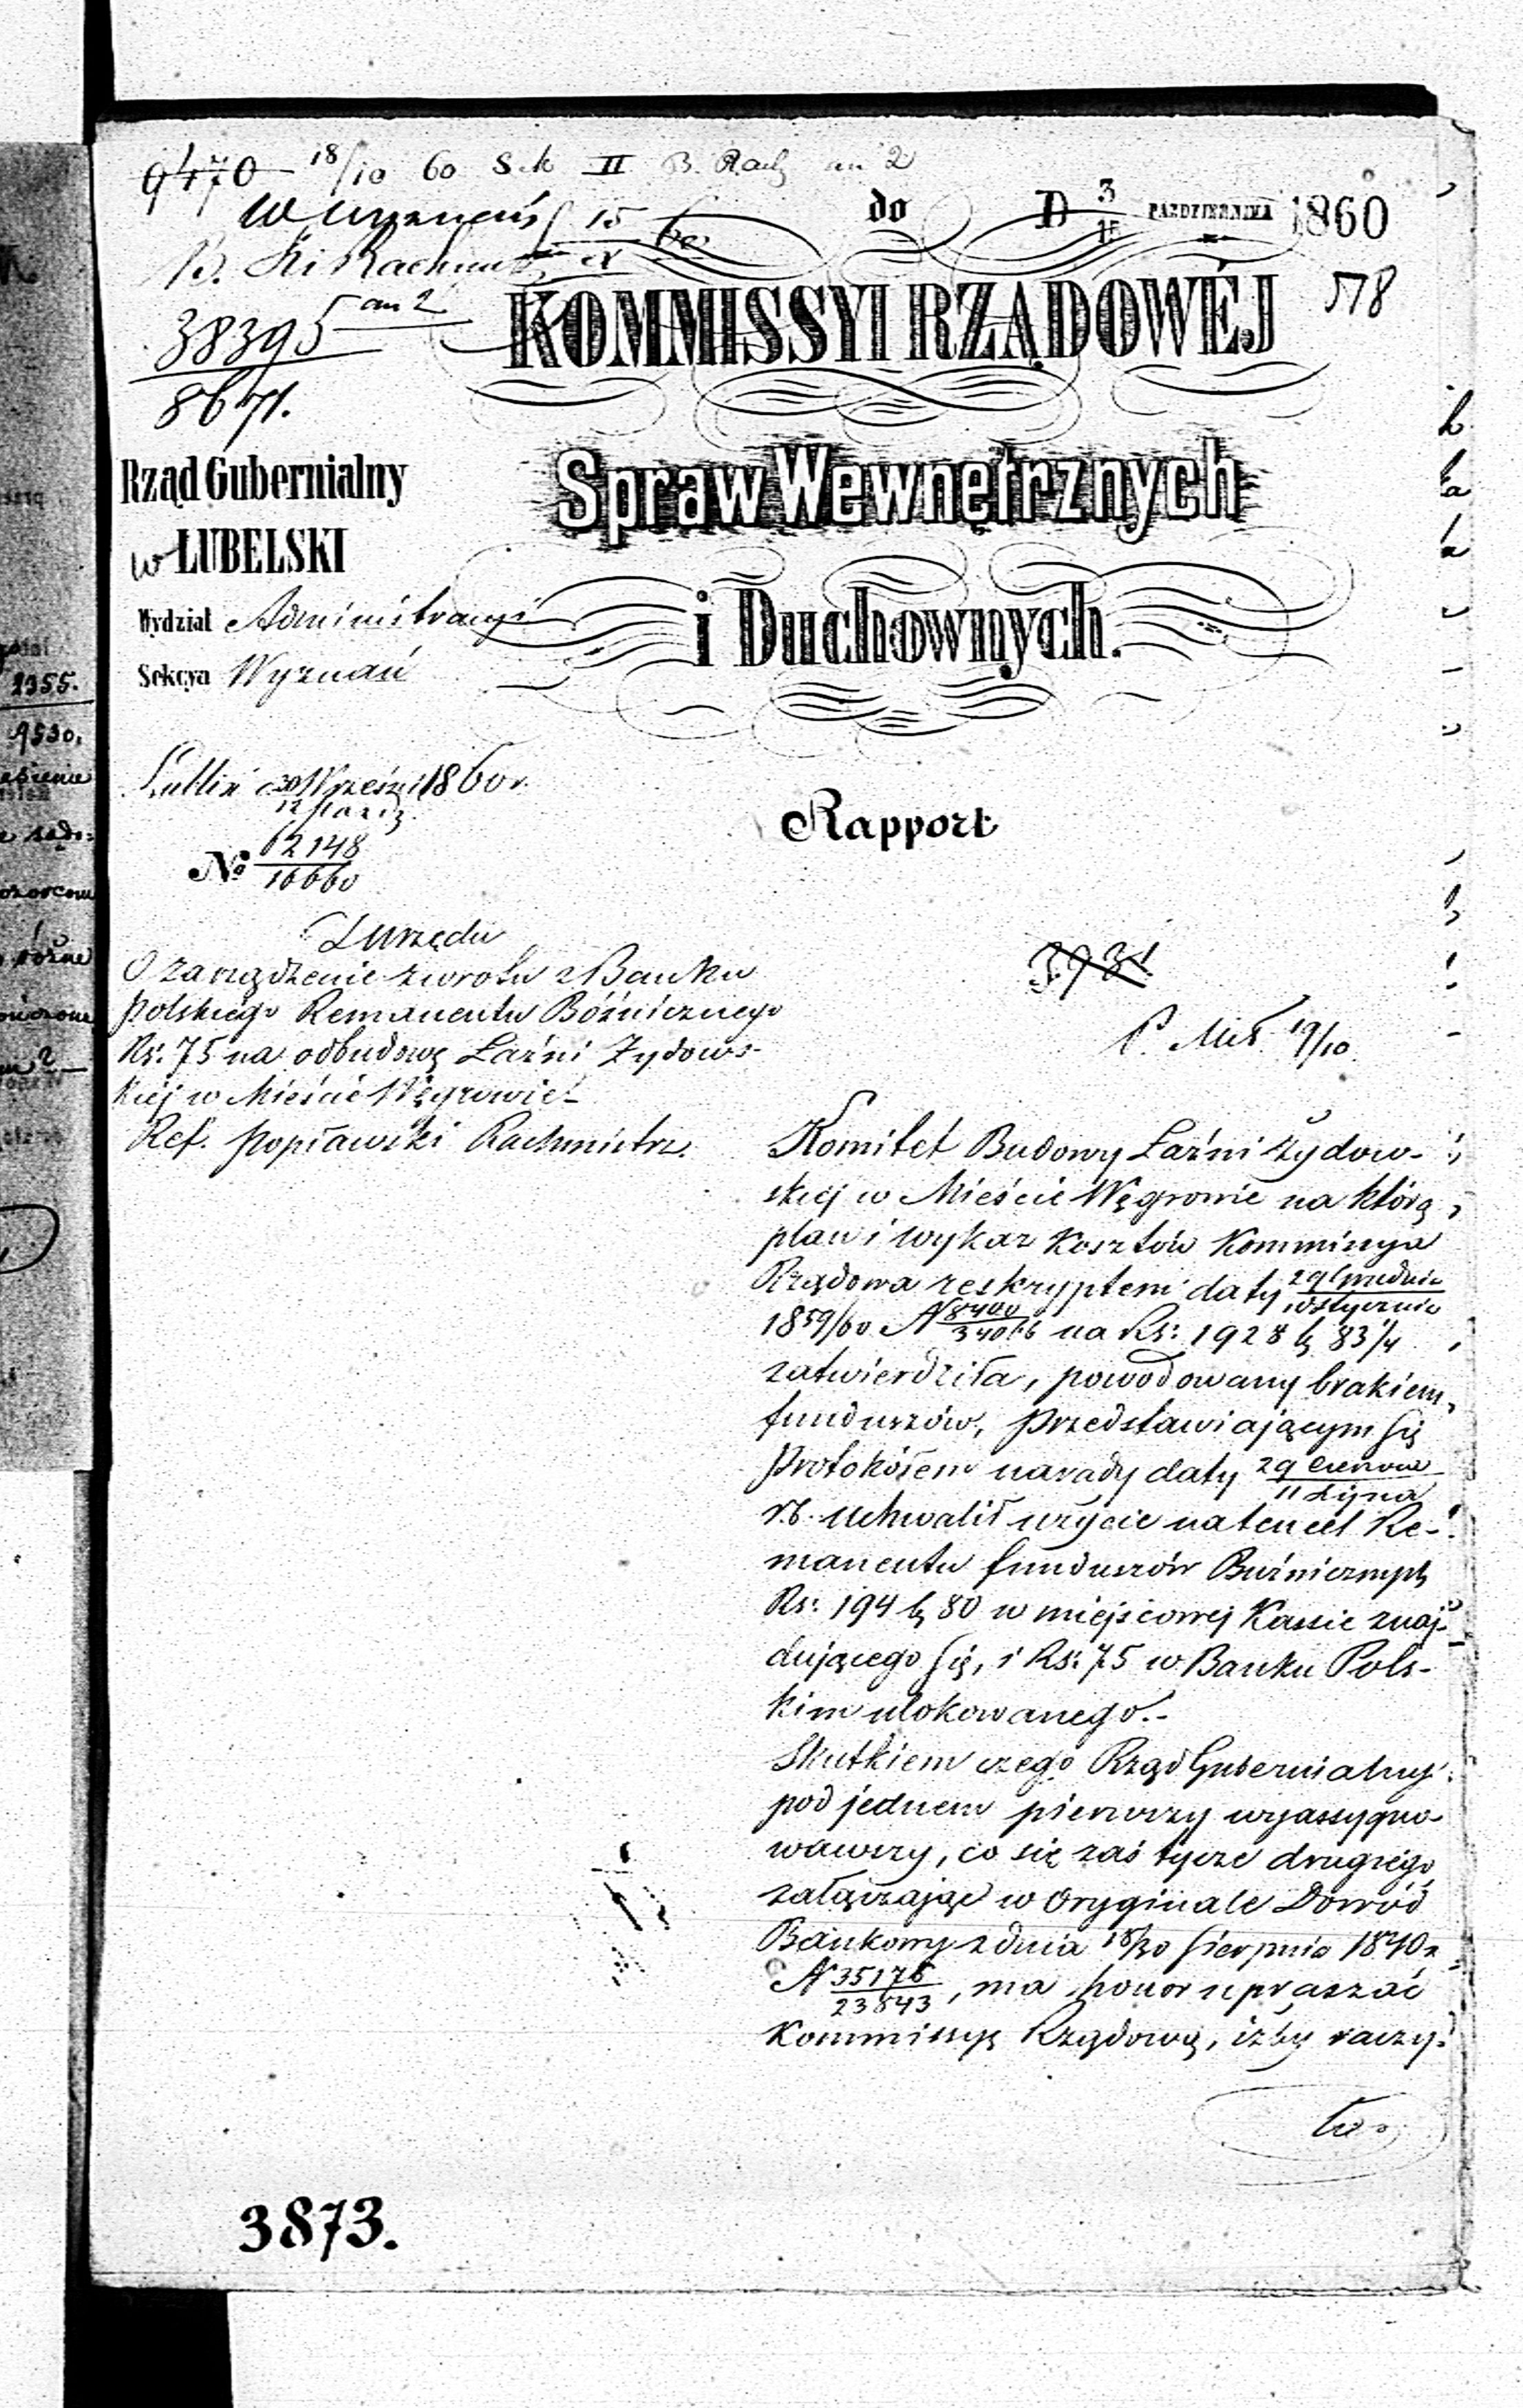 9470 18/10 60 Sek II B. Rach an 2
Wyznań 15/X 60
do D 3/15 PAZDZIERNIKA 1860
38395 an 2
8671.
578
KOMMISSYI RZĄDOWÉJ
Spraw Wewnętrznych
i Duchownych.
Rząd Gubernialny
w LUBELSKI
Wydział Administracyi
Sekcya Wyznań
Lublin d 30 Wrześn/12 Paźdz 1860 r.
No 62148/16660
Rapport
Z Urzędu
O zarządzenie zwrotu z Banku
Polskiego Remanentu Bóźnicznego
Rs. 75 na odbudowę Łaźni Żydows-
kiej w Mieście Węgrowie
Ref. Popławski Rachmistrz.
3931
19/10
Komitet Budowy Łaźni Żydow-
skiej w Mieście Węgrowie na którą
plan i wykaz kosztów Kommissya
Rządowa reskryptem daty 29 Grudnia/10 Stycznia
1859/60 N 8400/34086 na Rs: 1928 k 83 1/4
zatwierdziła, powodowany brakiem
funduszów, przedstawiającym się
Protokółem narady daty 29 Czerwca/11 Lipca
r.b. uchwalił użycie na ten cel Re-
manentu funduszów Buźnicznych
Rs: 194 k 80 w miejscowej Kassie znaj-
dującego się, i Rs: 75 w Banku Pols-
kim ulokowanego.-
Skutkiem czego Rząd Gubernialny
pod jednem pierwszy wyassygno-
wawszy, co się zaś tycze drugiego
załączając w Oryginale Dowód
Bankowy z dnia 18/30 Sierpnia 1840 r
N 35176/23843, ma honor upraszać
Kommissyę Rządową, iżby raczy-
ła
3873.